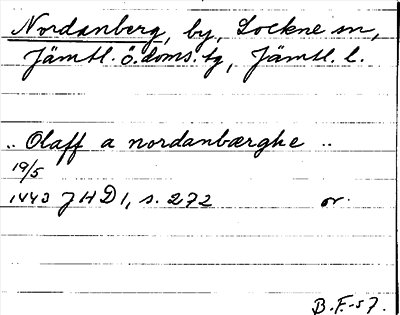 Nordanberg, by, Lockne sn,
Jämtl. ö. doms. tg, Jämtl. l.
.. Olaff a nordanbærghe ..
19/5
1443 JHD1, s. 272 or.
B.F.-57.